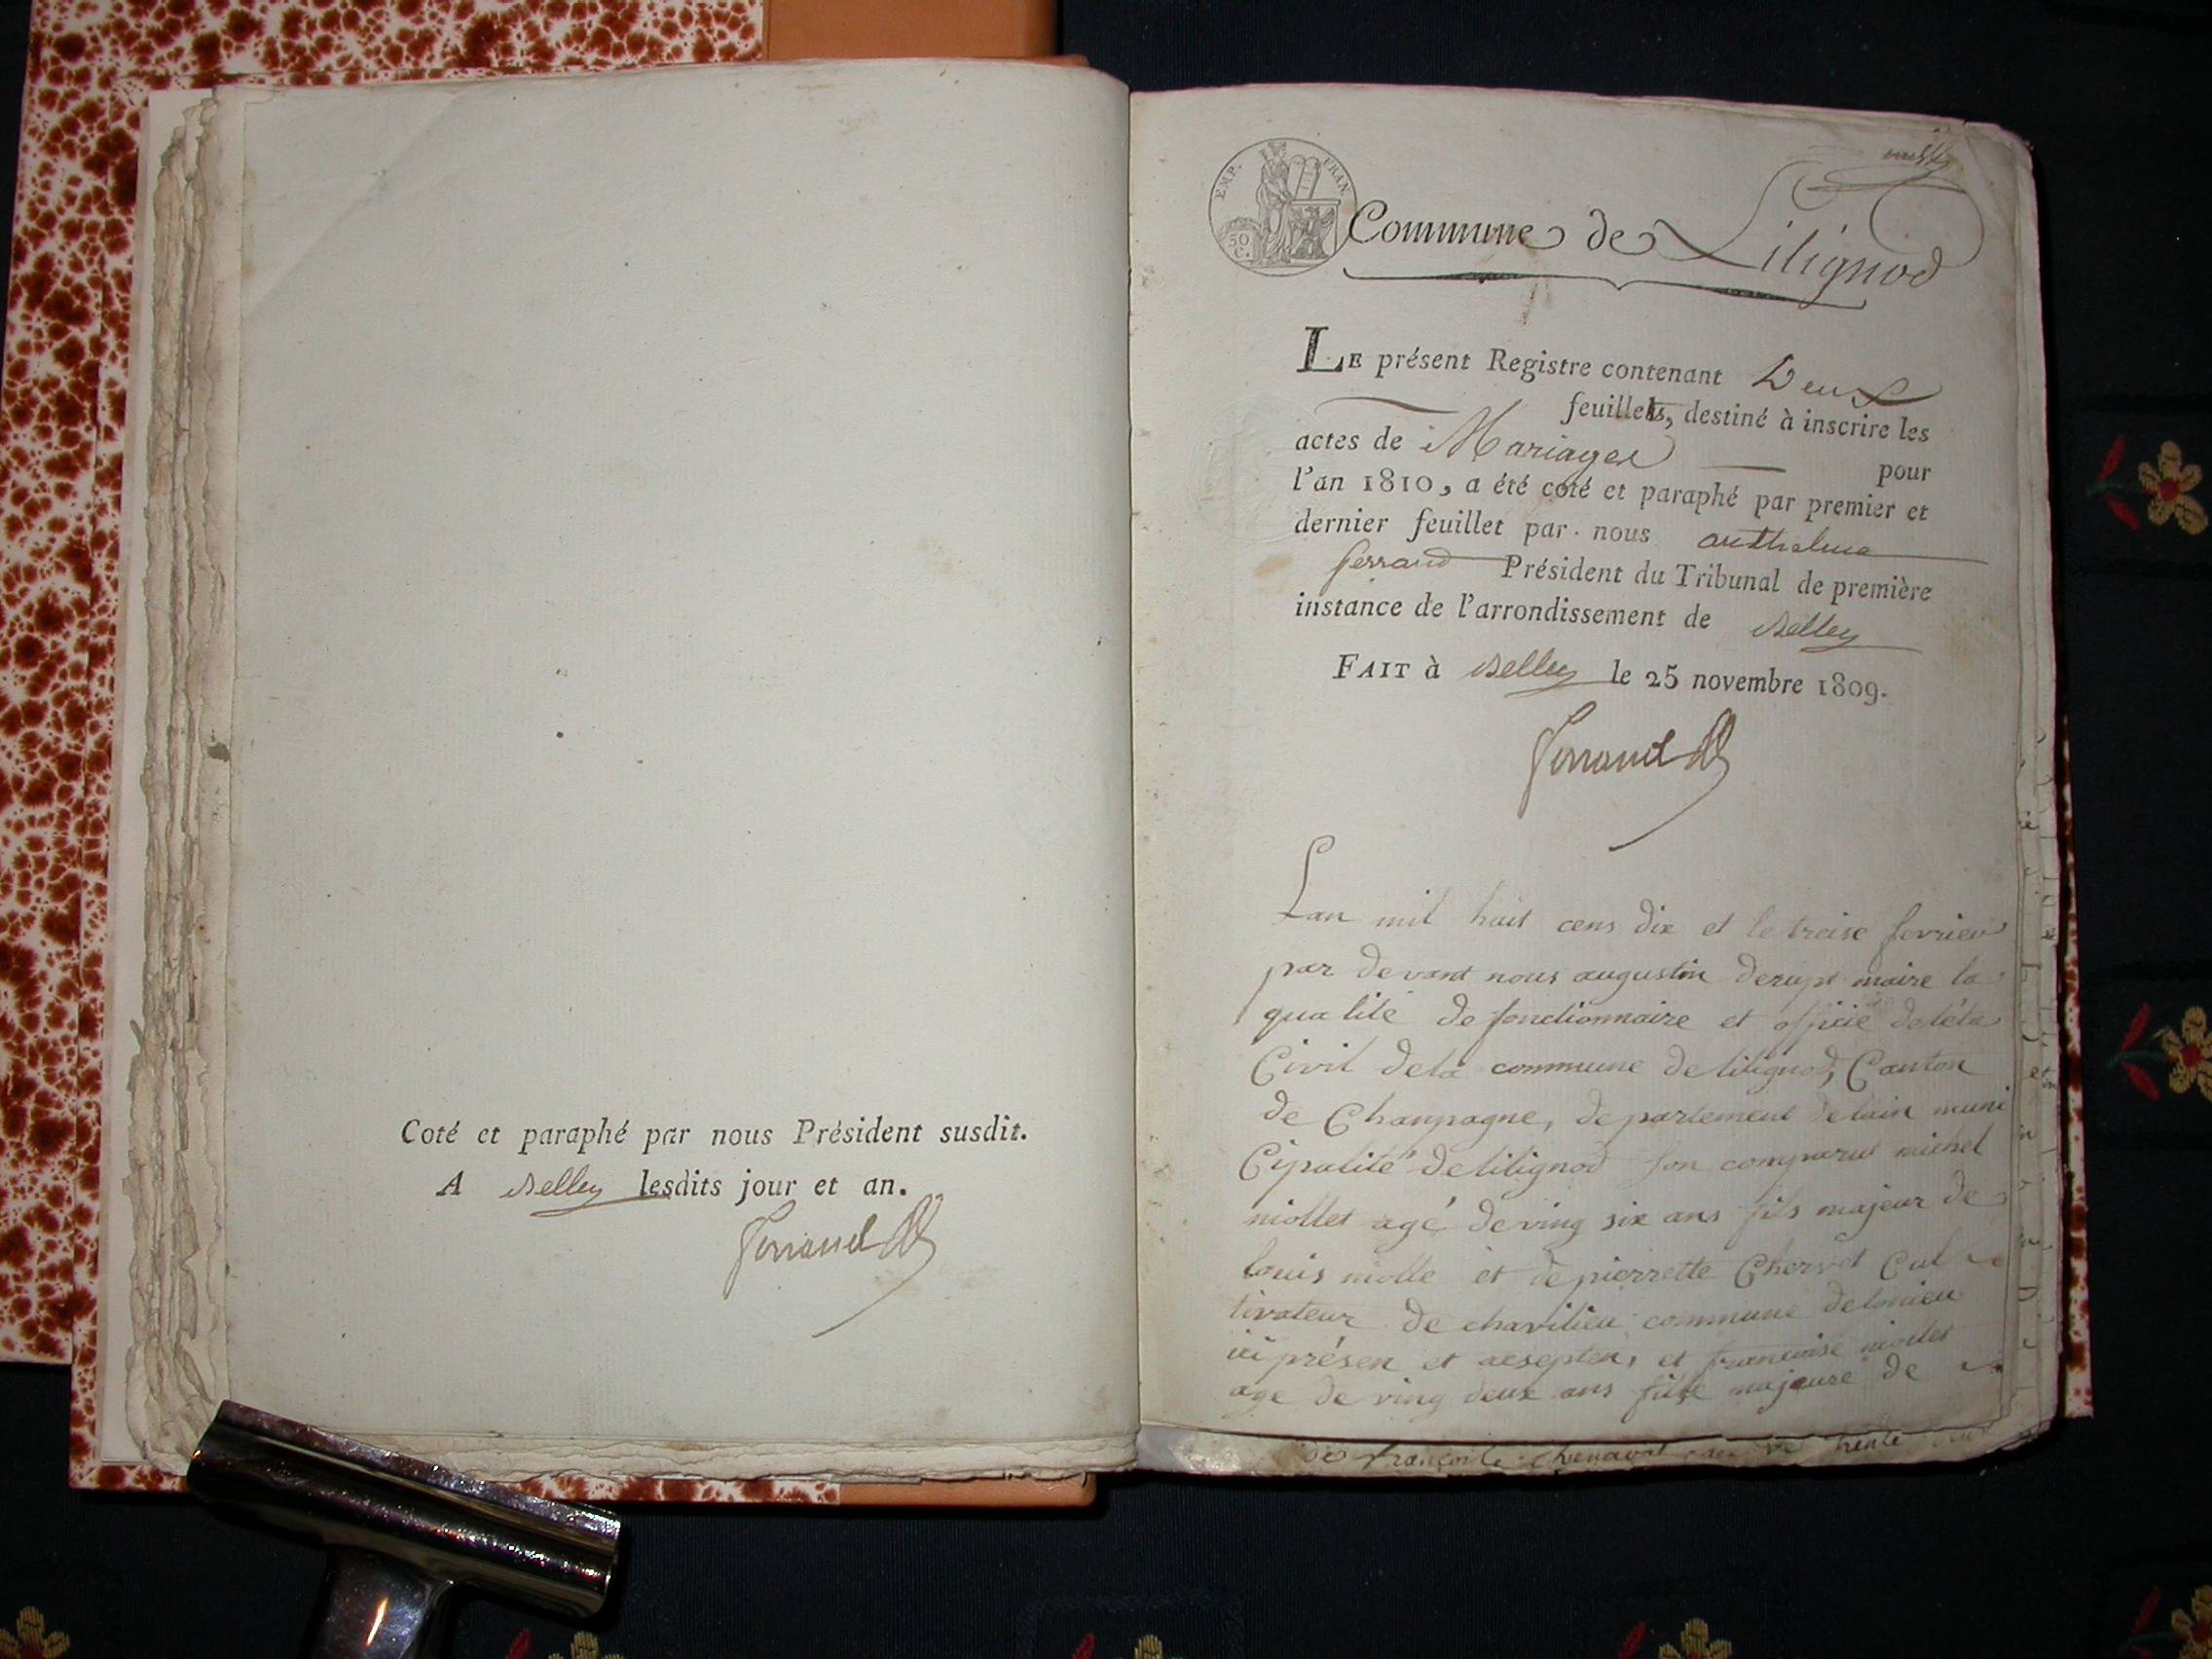 Coté et paraphé par nous Président susdit.
A Belley lesdits jour et an.
Ferrand
EMP. FRAN.
50 C.
Commune de Lilignod
LE présent Registre contenant Deux
feuillets, destiné à inscrire les
actes de Mariages pour
l'an 1810, a été coté et paraphé par premier et
dernier feuillet par nous anthelme
ferrand Président du Tribunal de première
instance de l'arrondissement de Belley
FAIT à Belley le 25 novembre 1809.
Ferrand
Lan mil huit cens dix et le treise fevrier
par devant nous augustin derupt maire la
qualité de fonctionnaire et officié deléta
Civil dela commune de lilignod, Canton
de Chanpagne, departement delain muni
Cipalité de lilignod son comparus michel
niollet agé de ving six ans fils majeur de
louis niolle et de pierrette Chervet Cul
tivateur de chavilieu commune delonieu
ici présen et acsepten, et francoise niollet
age de ving deux ans fille majeure de
de françoise chenavat trente